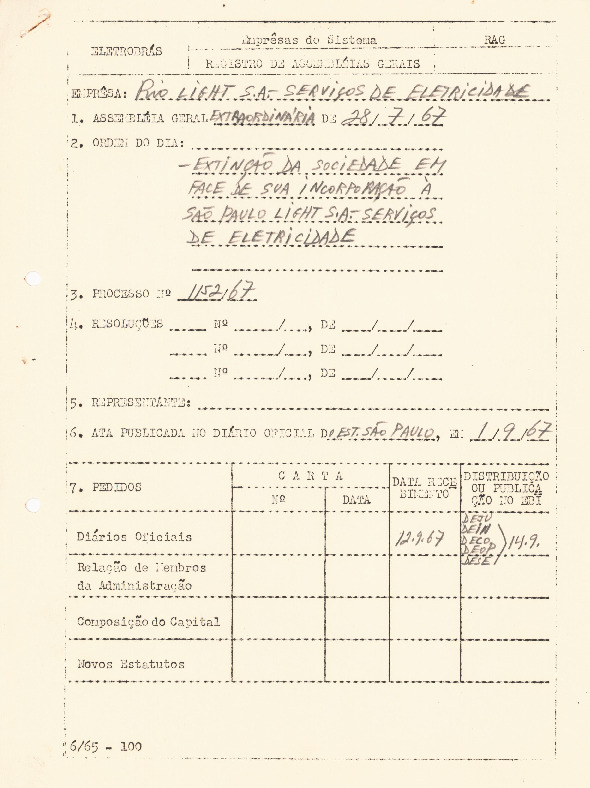 ELETROBRÁS
Emprêsas do Sistema
RAG
REGISTRO DE ASSEMBLÉIAS GERAIS
EMPRÊSA: RIO LIGHT S.A- SERVIÇOS DE ELETRICIDADE
1. ASSEMBLÉIA GERAL EXTRAORDINÁRIA DE 28/7/67
2. ORDEM DO DIA:
- EXTINÇÃO DA SOCIEDADE EM
FACE DE SUA INCORPORAÇÃO À
SÃO PAULO LIGHT S.A- SERVIÇOS
DE ELETRICIDADE
3. PROCESSO Nº 1152/67
4. RESOLUÇÕES Nº / , DE / /
Nº / , DE / /
Nº / , DE / /
5. REPRESENTANTE:
6. ATA PUBLICADA NO DIÁRIO OFICIAL D/EST. SÃO PAULO, EM 1/9/67
7. PEDIDOS
CARTA
Nº
DATA
DATA RECE
BIMENTO
DISTRIBUIÇÃO
OU PUBLICA
ÇÃO NO EBI
Diários Oficiais
12.9.67
DEJU
DEIN
DECO
DEOP
DESE
14.9.
Relação de Membros
da Administração
Composição do Capital
Novos Estatutos
6/65 - 100